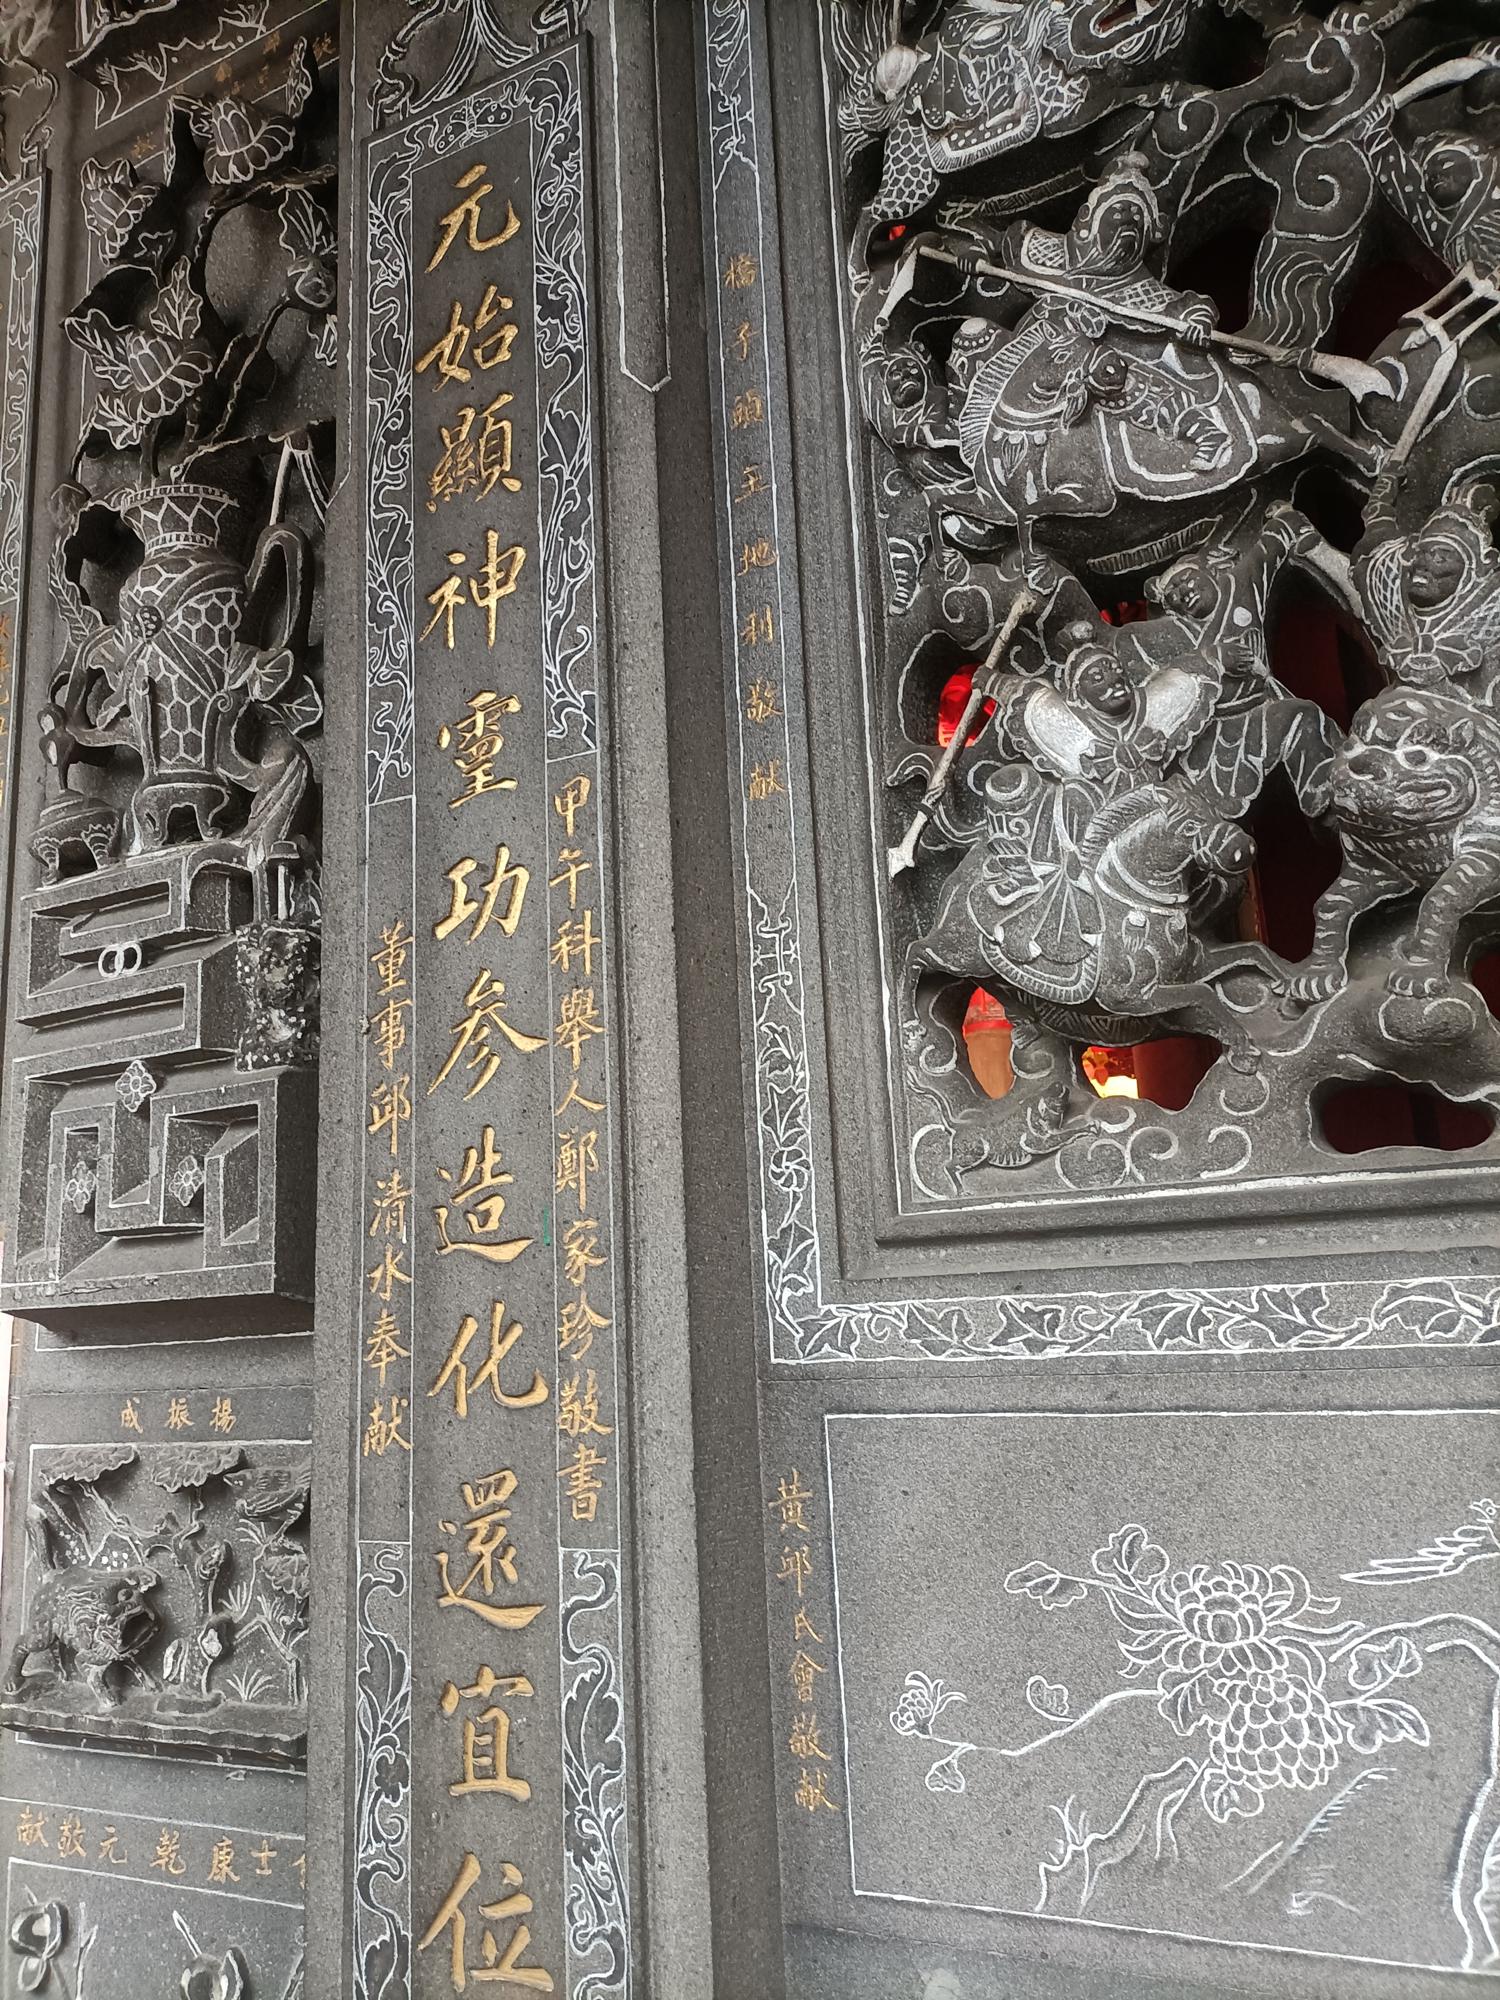 橋子頭王地利敬献
黃邱氏會敬献
甲午科舉人鄭家珍敬書
元始顯神靈功參造化還宜位
董事邱清水奉献
楊振成
士康乾元敬献